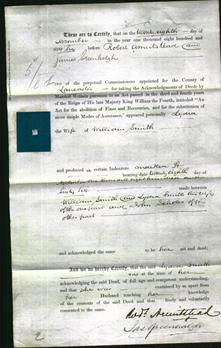 These are to Certify, that on the twenty eighth day of
November in the year one thousand eight hundred and
sixty before Robert Armitstead and
James Greenhalgh
two of the perpetual Commissioners appointed for the County of
Lancaster for taking the Acknowledgments of Deeds by
Married Women
the Reign of His late Majesty King William the Fourth, intituled "An
Act for the abolition of Fines and Recoveries, and for the substitution of
more simple Modes of Assurance," appeared personally Lydia
the Wife of William Smith
and produced a certain Indenture marked A
bearing date twenty eighth
sixty made between
William Smith and Lydia Smith his wife
of the one part and John Scholes of the
other part
and acknowledged the same to be her act and deed;
And we do hereby Certify, that the said Lydia Smith
was at the time of her
acknowledging the said Deed, of full age and competent understanding,
and that she was examined by us apart from
her Husband touching her knowledge
of the contents of the said Deed and that she freely and voluntarily
consented to the same.
Robt Armitstead
Jas Greenhalgh